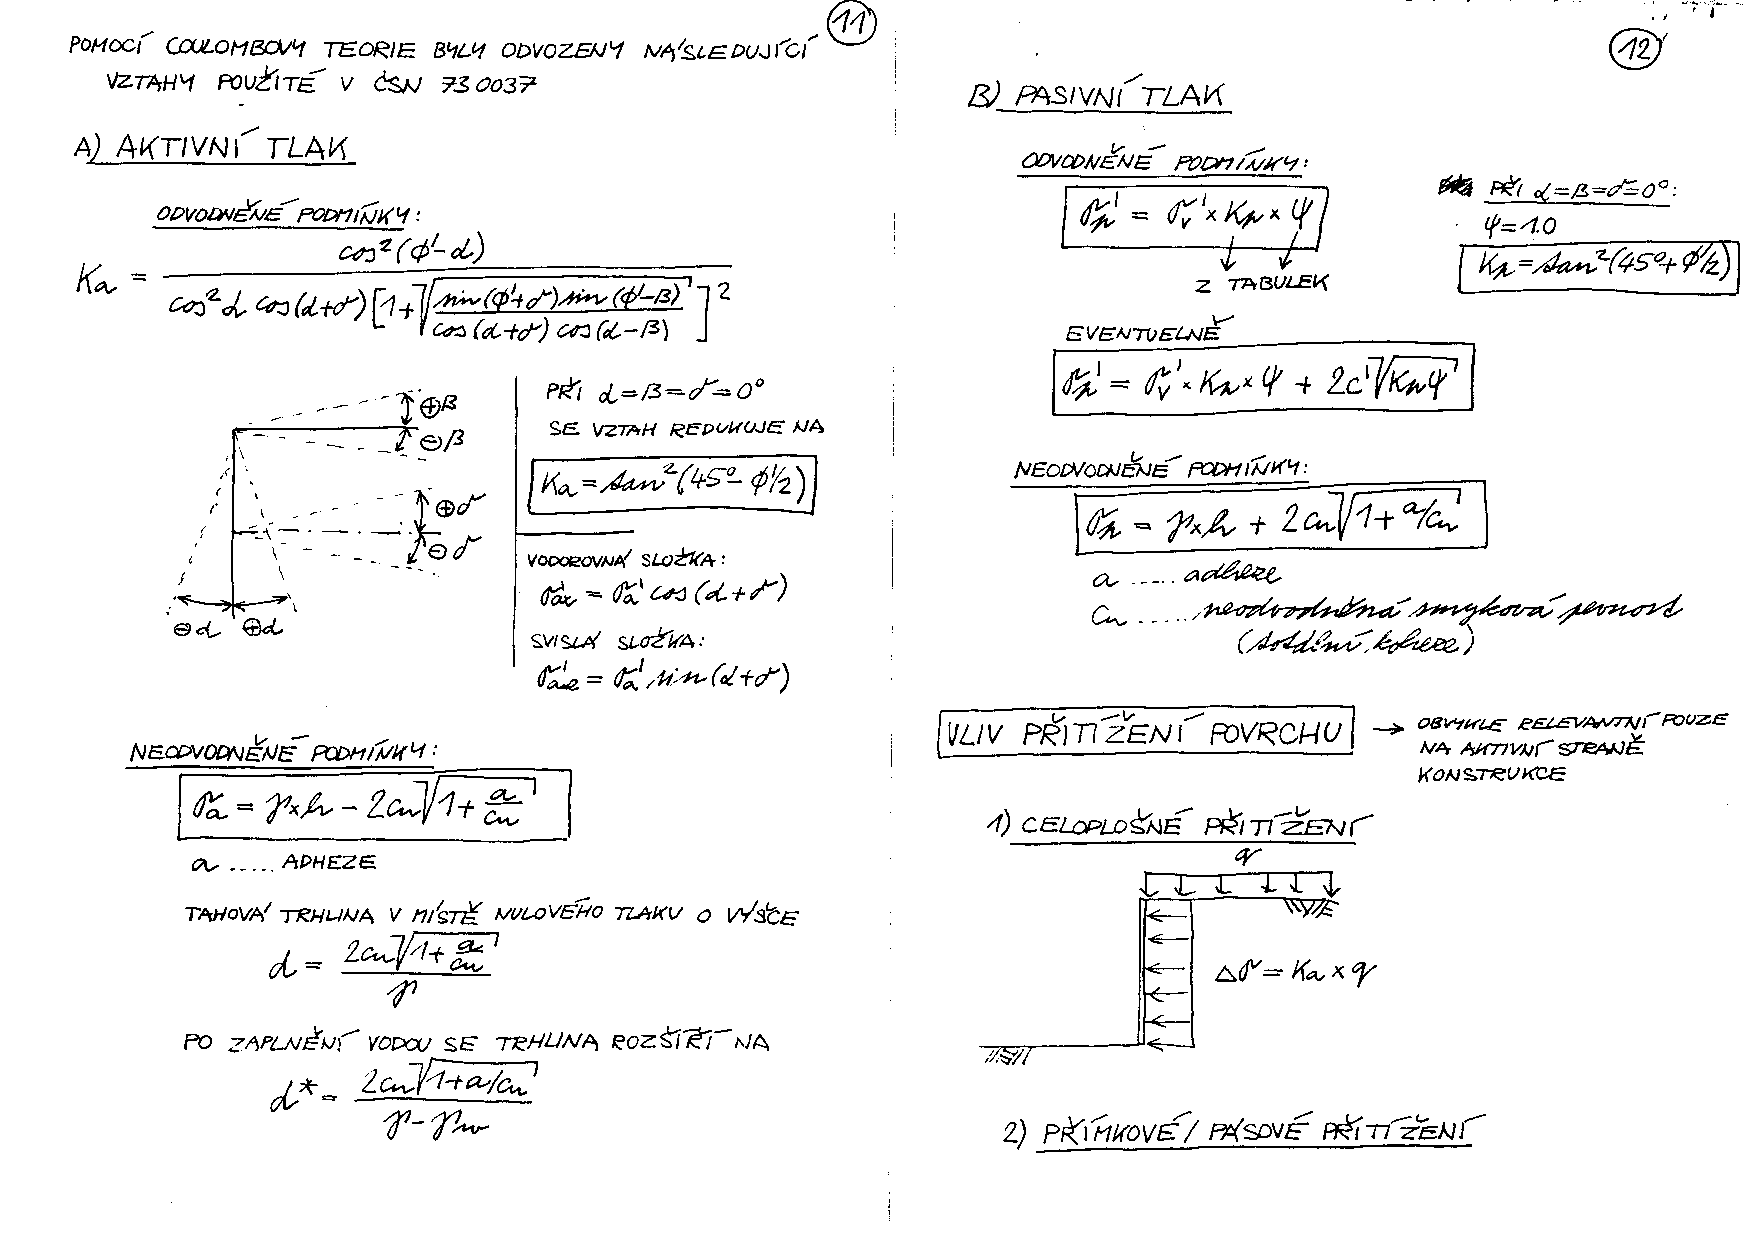 11
POMOCÍ COULOMBOVY TEORIE BYLY ODVOZENY NÁSLEDUJÍCÍ
VZTAHY POUŽITÉ V ČSN 73 0037
A) AKTIVNÍ TLAK
ODVODNĚNÉ PODMÍNKY:
Ka = cos²(ϕ'-α) / cos²α cos(α+δ) [1+√(sin(ϕ'+δ) sin(ϕ'-β) / cos(α+δ) cos(α-β))]²
⊕β
⊖β
⊕δ
⊖δ
⊖α ⊕α
PŘI α=β=δ=0°
SE VZTAH REDUKUJE NA
Ka = tan²(45°- ϕ'/2)
VODOROVNÁ SLOŽKA:
σ'ax = σ'a cos(α+δ)
SVISLÁ SLOŽKA:
σ'az = σ'a sin(α+δ)
NEODVODNĚNÉ PODMÍNKY:
σa = γ×h - 2cu√(1+ a/cu)
a ..... ADHEZE
TAHOVÁ TRHLINA V MÍSTĚ NULOVÉHO TLAKU O VÝŠCE
d = 2cu√(1+ a/cu) / γ
PO ZAPLNĚNÍ VODOU SE TRHLINA ROZŠÍŘÍ NA
d* = 2cu√(1+a/cu) / γ-γw
12
B) PASIVNÍ TLAK
ODVODNĚNÉ PODMÍNKY:
σp' = σv' × Kp × ψ
Z TABULEK
PŘI α=β=δ=0°:
ψ=1.0
Kp = tan²(45°+ ϕ'/2)
EVENTUELNĚ
σp' = σv' × Kp × ψ + 2c'√(Kpψ)
NEODVODNĚNÉ PODMÍNKY:
σp = γ×h + 2cu√(1+ a/cu)
a ..... adheze
cu ..... neodvodněná smyková pevnost
(totální koheze)
VLIV PŘITÍŽENÍ POVRCHU → OBVYKLE RELEVANTNÍ POUZE
NA AKTIVNÍ STRANĚ
KONSTRUKCE
1) CELOPLOŠNÉ PŘITÍŽENÍ
q
Δσ = Ka × q
2) PŘÍMKOVÉ / PÁSOVÉ PŘITÍŽENÍ